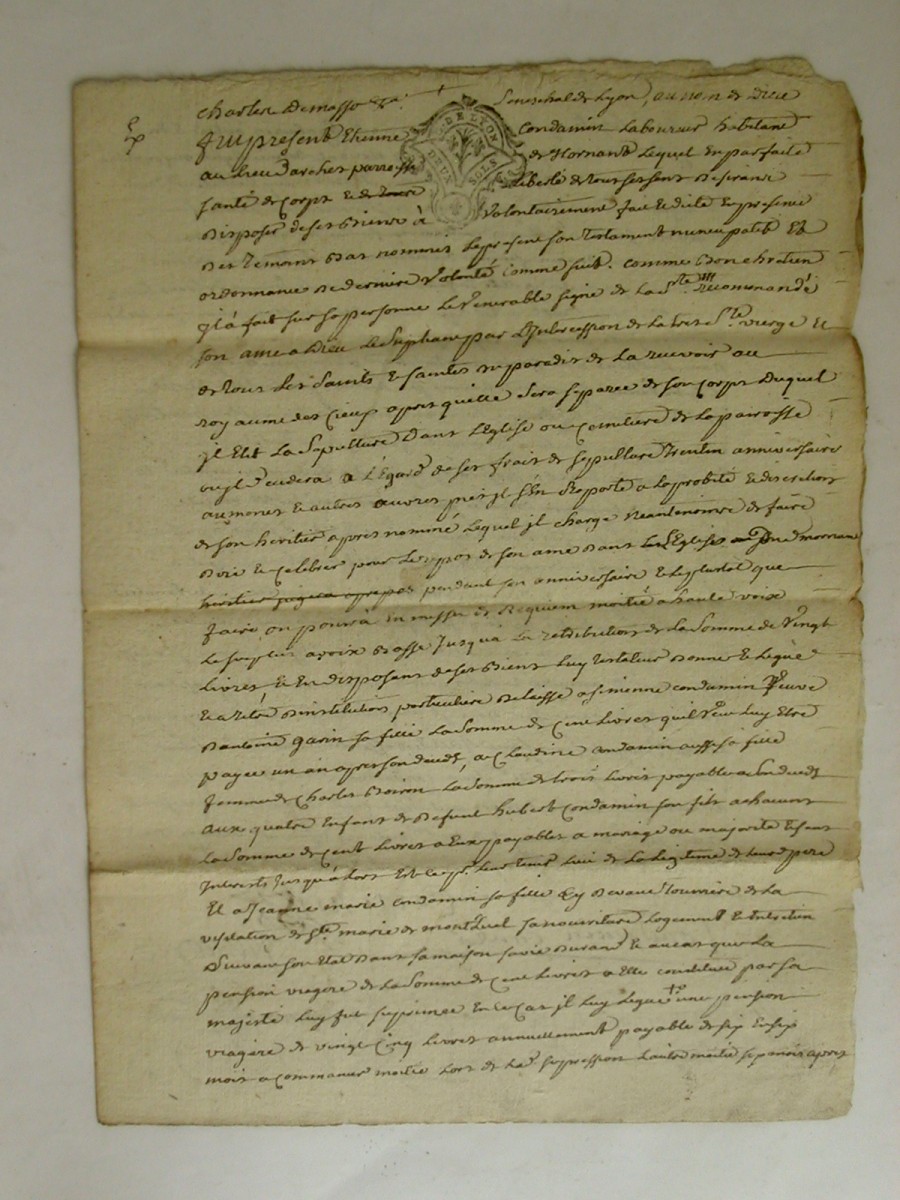 Charles Demasso Seneschal de Lyon, au nom de Dieu
DE LYON
DEUX SOLS
fut present Etienne Condamin Laboureur habitant
au Lieu Darches parroisse de Mornant Lequel En parfaite
santé de Corps & de Liberté de tous ses sens Desirant
Disposer de ses Biens à Volontairement fait & dicté En presence
Des temoins Bas nommés Le present son testament nuncupatif Et
ordonnance De derniere Volonté Comme suit. Comme Bon chretien
jl a fait sur sa personne Le Venerable signe de La Ste recommandé
son ame a Dieu Le suppliant par L'Intercession de La Ste vierge Et
de tous Les Saints & saintes En paradis de La recevoir au
royaume des Cieux apres quelle Sera separée de son Corps Duquel
jl Elit La Sepulture Dans L'Eglise ou Cimetiere de La paroisse
ou jl Decedera a L'Egard de ses frais de sepulture trentin anniversaire
aumones & autres œuvres pies jl s'En Raporte a La probité & discretion
de son heritier apres nommé Lequel jl Charge Neantmoins de faire
Dire & Celebrer pour Le repos de son ame Dans L'Eglise de Mornant
pendant son anniversaire & Le plustot que
faire on pourra Des messes de Requiem moitié a haute voix
Le surplus a voix Basse Jusqu'a La retribution de La Somme de Vingt
Livres, & En disposant de ses Biens Luy testateur Donne & Legue
& a titre Dinstitution particuliere Delaisse a Condamin Veuve
Dantoine Garin sa fille La Somme de Cent Livres quil Veut Luy Etre
payée un an apres son deced, a Claudine Condamin aussi sa fille
femme de Charles Boiron La Somme de trois Livres payable a son deced
aux quatre Enfant de Defunt hubert Condamin son fils a chacuns
La Somme de Cent Livres a Eux payables a mariage ou majorité sans
Interests Jusqu'a Lors Et Ce pr Leur tenir Lieu de La Legitime de Leur dt pere
Et a Jeanne marie Condamin sa fille Cy Devant tourriere de La
visitation de Ste marie de montLuel sa nourriture Logement & Entretien
Suivant son Etat Dans sa maison sa vie Durant & au cas que La
pension viagere de La Somme de Cent Livres a Elle Constituée par sa
majesté Luy fut suprimée En ce Cas jl Luy Legue une pension
viagere de vingt Cinq Livres annuellement payable de six En six
mois a Commancer moitié Lors de La de suppression L'autre moitié six mois apres